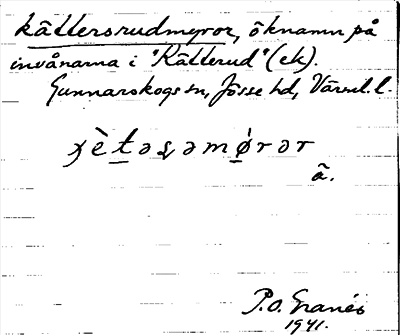 kättersrudmyror, öknamn på
invånarna i "Kätterud" (ek).
Gunnarskogs sn, Jösse hd, Värml. l.
ɣèt̲əʂəmǿ̲rər
ã.
P.O. Granér
1941.